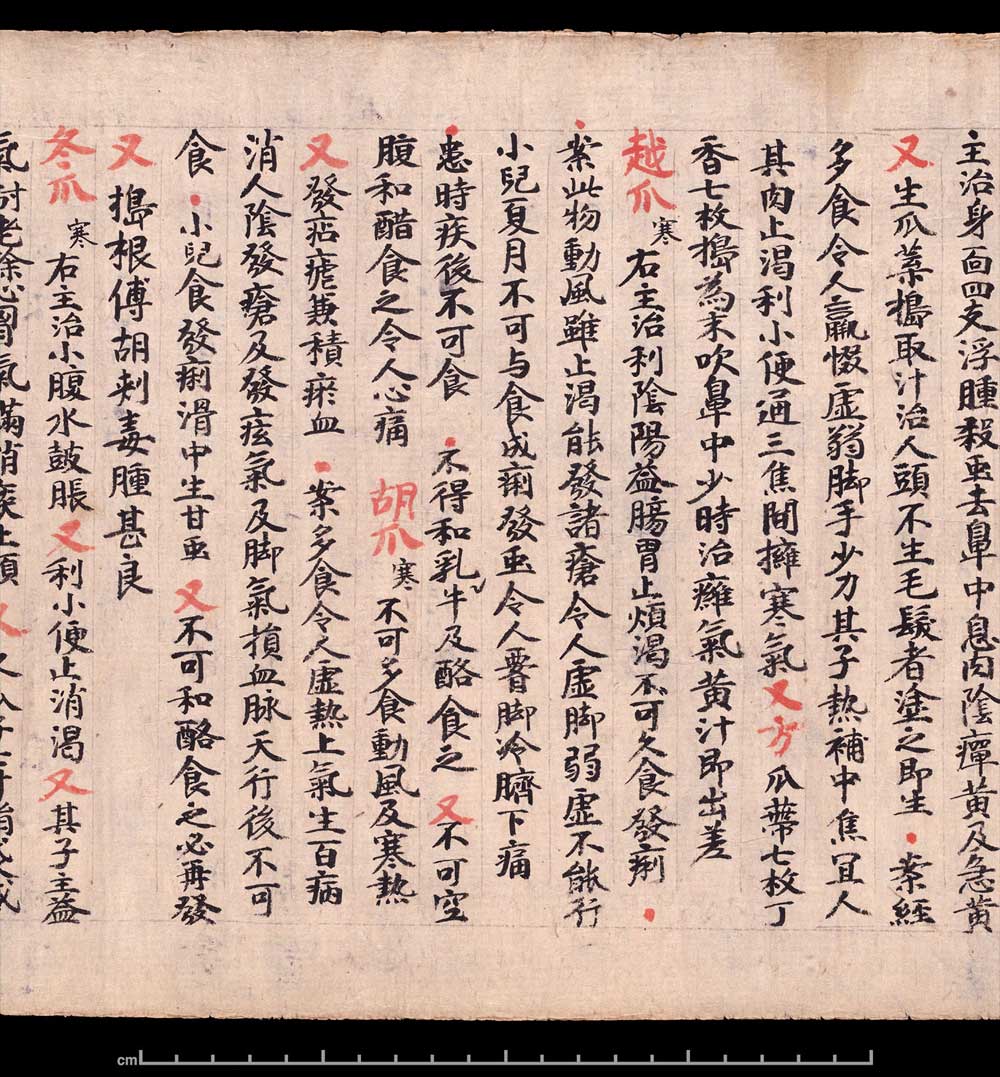 主治身面四支浮腫殺虫去鼻中息肉陰癉黃及急黃
又生爪葉搗取汁治人頭不生毛髮者塗之即生 案經
多食令人羸惙虛弱脚手少力其子熱補中焦宜人
其肉止渴利小便通三焦間擁塞氣又方 瓜蔕七枚丁
香七枚搗為末吹鼻中少時治癰氣黃汁即出差
越爪寒 右主治利陰陽益腸胃止煩渴不可久食發痢
案此物動風雖止渴能發諸瘡令人虛脚弱虛不能行
小兒夏月不可与食成痢發虫令人臍脚冷臍下痛
患時疾後不可食 不得和乳牛及酪食之 又不可空
腹和醋食之令人心痛 胡爪寒 不可多食動風及寒熱
又發痁瘧兼積瘀血 案多食令人虛熱上氣生百病
消人陰發瘡及發痃氣及脚氣損血脉天行後不可
食 小兒食發痢滑中生甘虫 又不可和酪食之必再發
又 搗根傅胡刾毒腫甚良
冬爪寒 右主治小腹水鼓脹 又利小便止消渴 又其子主益
氣耐老除心胷氣滿消痰止煩 又